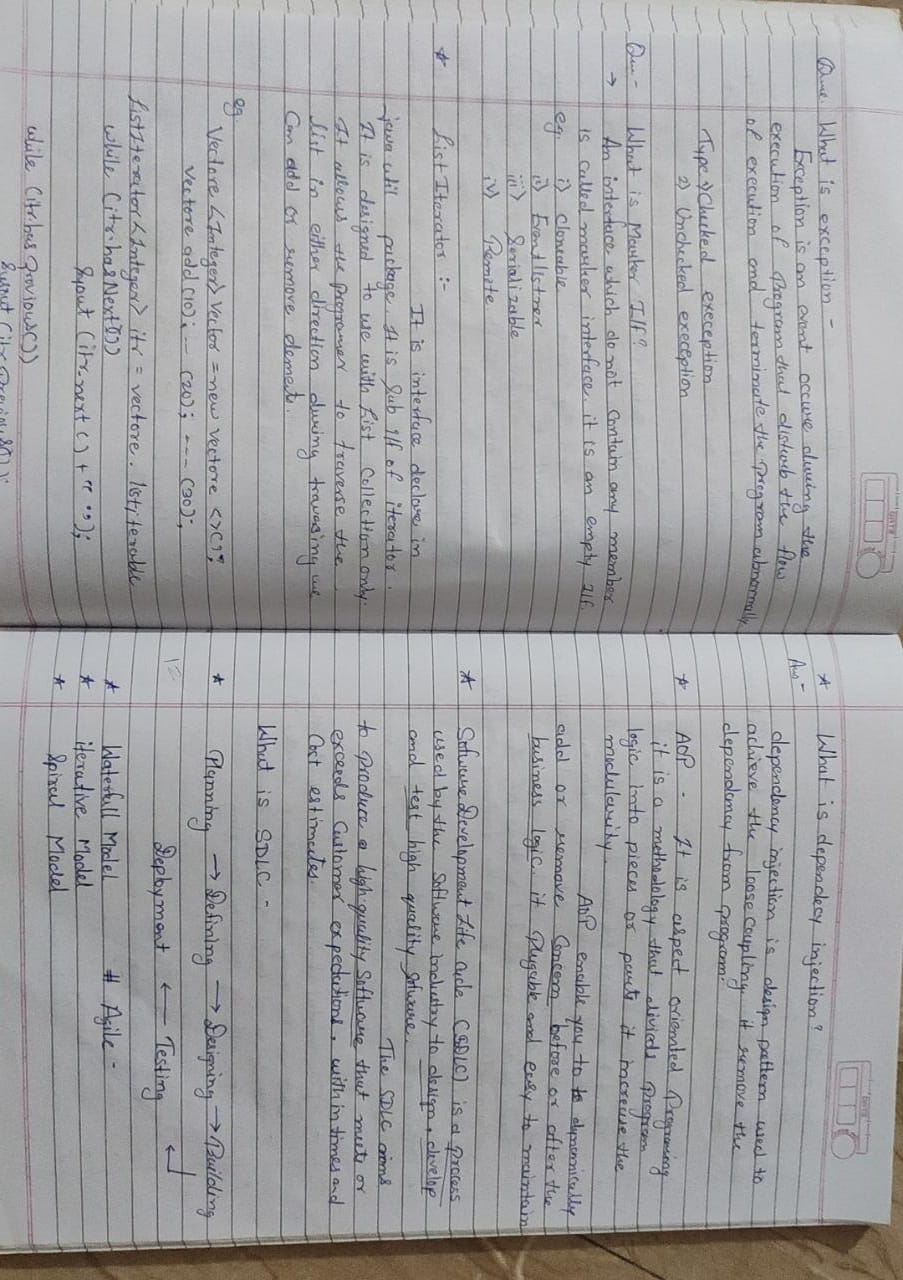 DATE
Que. What is exception -
Exception is an event occure during the
execution of Program that disturb the flow
of execution and terminate the program abnormally
Type 1) Checked exeception
2) Unchecked exeception
Que - What is Marker I/f?
→ An interface which do not contain any member
is called marker interface. it is an empty I/f.
eg. i) Cloneable
ii) Eventlistner
iii) Serializable
iv) Remote
* List Iterator :-
It is interface declare in
java util package. It is Sub I/f of iterator.
It is designed to use with List Collection only.
It allows the programer to traverse the
list in either direction during traversing we
Can add or remove element.
eg.
Vectore <Integer> Vector = new vectore <>();
Vectore add (10); - (20); --- (30);
ListIterator <Integer> itr = vectore. listiterable
while (itr.hasNext())
Syout (itr.next () + " ");
while (itr.has Previous())
Sysout (itr.Previous());
DATE
* What is dependecy injection?
Ans -
dependency injection is design pattern used to
achieve the loose coupling. it remove the
dependency from program.
* AOP - It is aspect oriented Programing
it is a methodology that divids program
logic into pieces or parts it increase the
modularity.
AOP enable you to to dynamically
add or remove Concern before or after the
business logic. it Plugable and easy to maintain
* Sofware Development Life Cycle (SDLC) is a process
used by the Software industry to design, develop
and test high quality Sofware.
The SDLC aims
to Produce a high-quality Software that meets or
exceeds Customer expectations, within times and
Cost estimates.
What is SDLC -
* Planning → Defining → Designing → Building
12 Deployment ← Testing ↵
* Waterfall Model # Agile -
* iterative Model
* Spiral Model